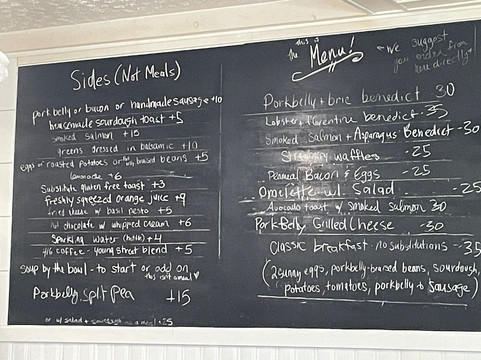 Sides (Not Meals)
porkbelly or bacon or handmade sausage +10
housemade sourdough toast +5
smoked salmon +10
greens dressed in balsamic +10
eggs or roasted potatoes or belly braised beans +5
lemonade +6
Substitute gluten free toast +3
freshly squeezed orange juice +9
w/ basil pesto +5
hot chocolate w/ whipped cream +6
Sparkling water (bottle) +4
coffee - young street blend +5
Soup by the bowl - to start or add on
this isn't a meal
Porkbelly, split pea +15
or w/ salad + sourdough as a meal +25
this is
the Menu!
we suggest
you order from
here directly
Porkbelly + brie benedict 30
Lobster + florentine benedict - 35
Smoked Salmon + Asparagus Benedict - 30
waffles - 25
Peameal Bacon + Eggs - 25
Omelette w/ Salad - 25
Avocado toast w/ smoked salmon 30
Porkbelly Grilled Cheese - 30
Classic breakfast - no substitutions - 35
(2 sunny eggs, porkbelly-braised beans, sourdough,
potatoes, tomatoes, porkbelly + sausage)